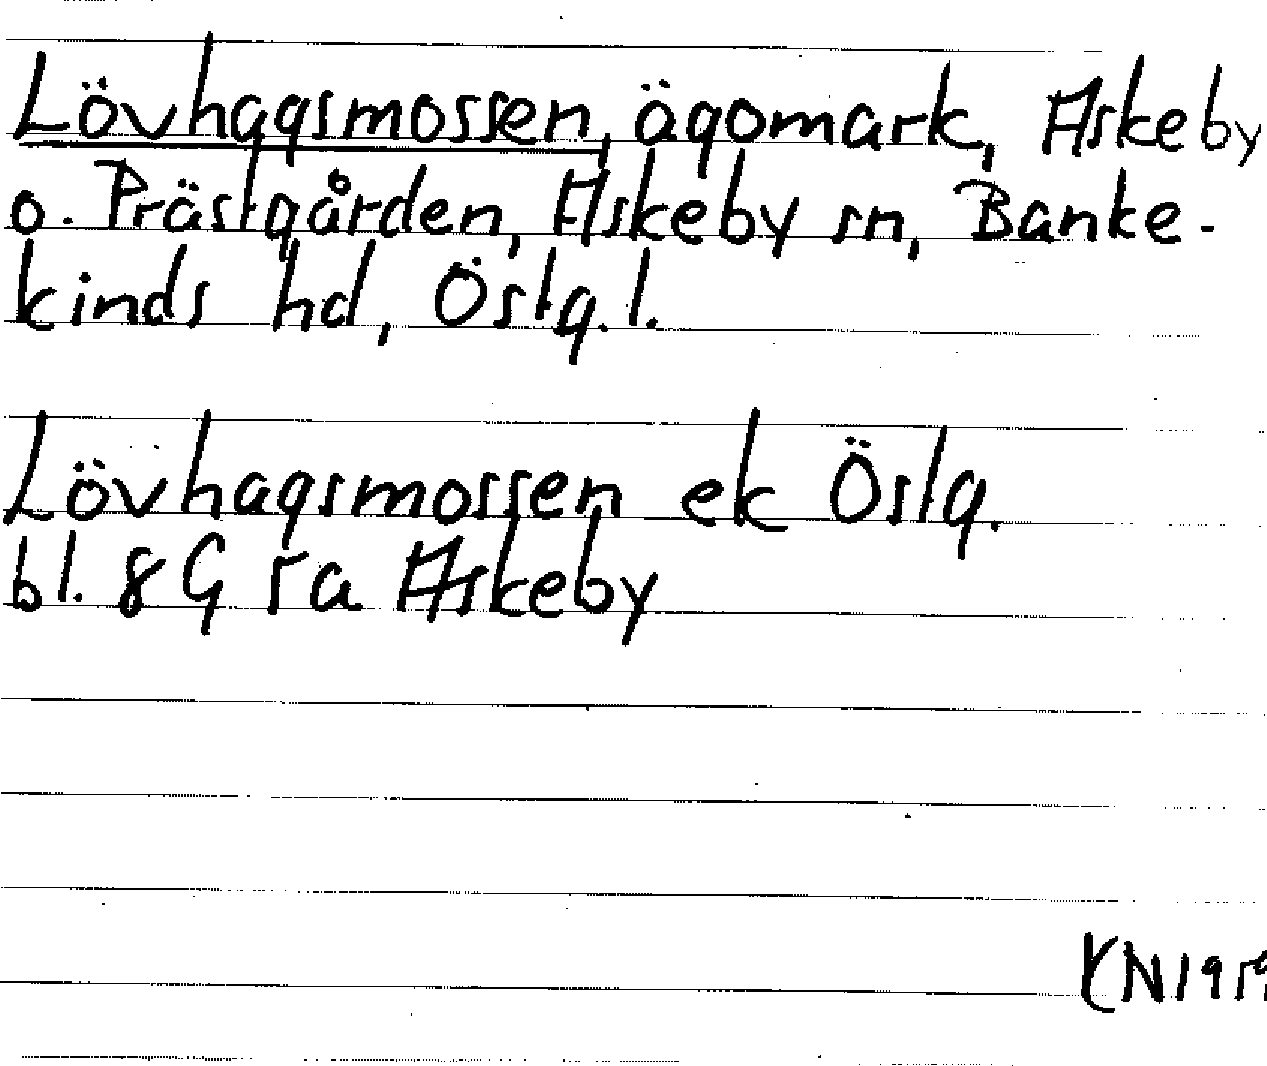 Lövhagsmossen, ägomark, Askeby
o. Prästgården, Askeby sn, Banke-
kinds hd, Östg. l.
Lövhagsmossen ek Östg.
bl. 8G 5a Askeby
KN 1959